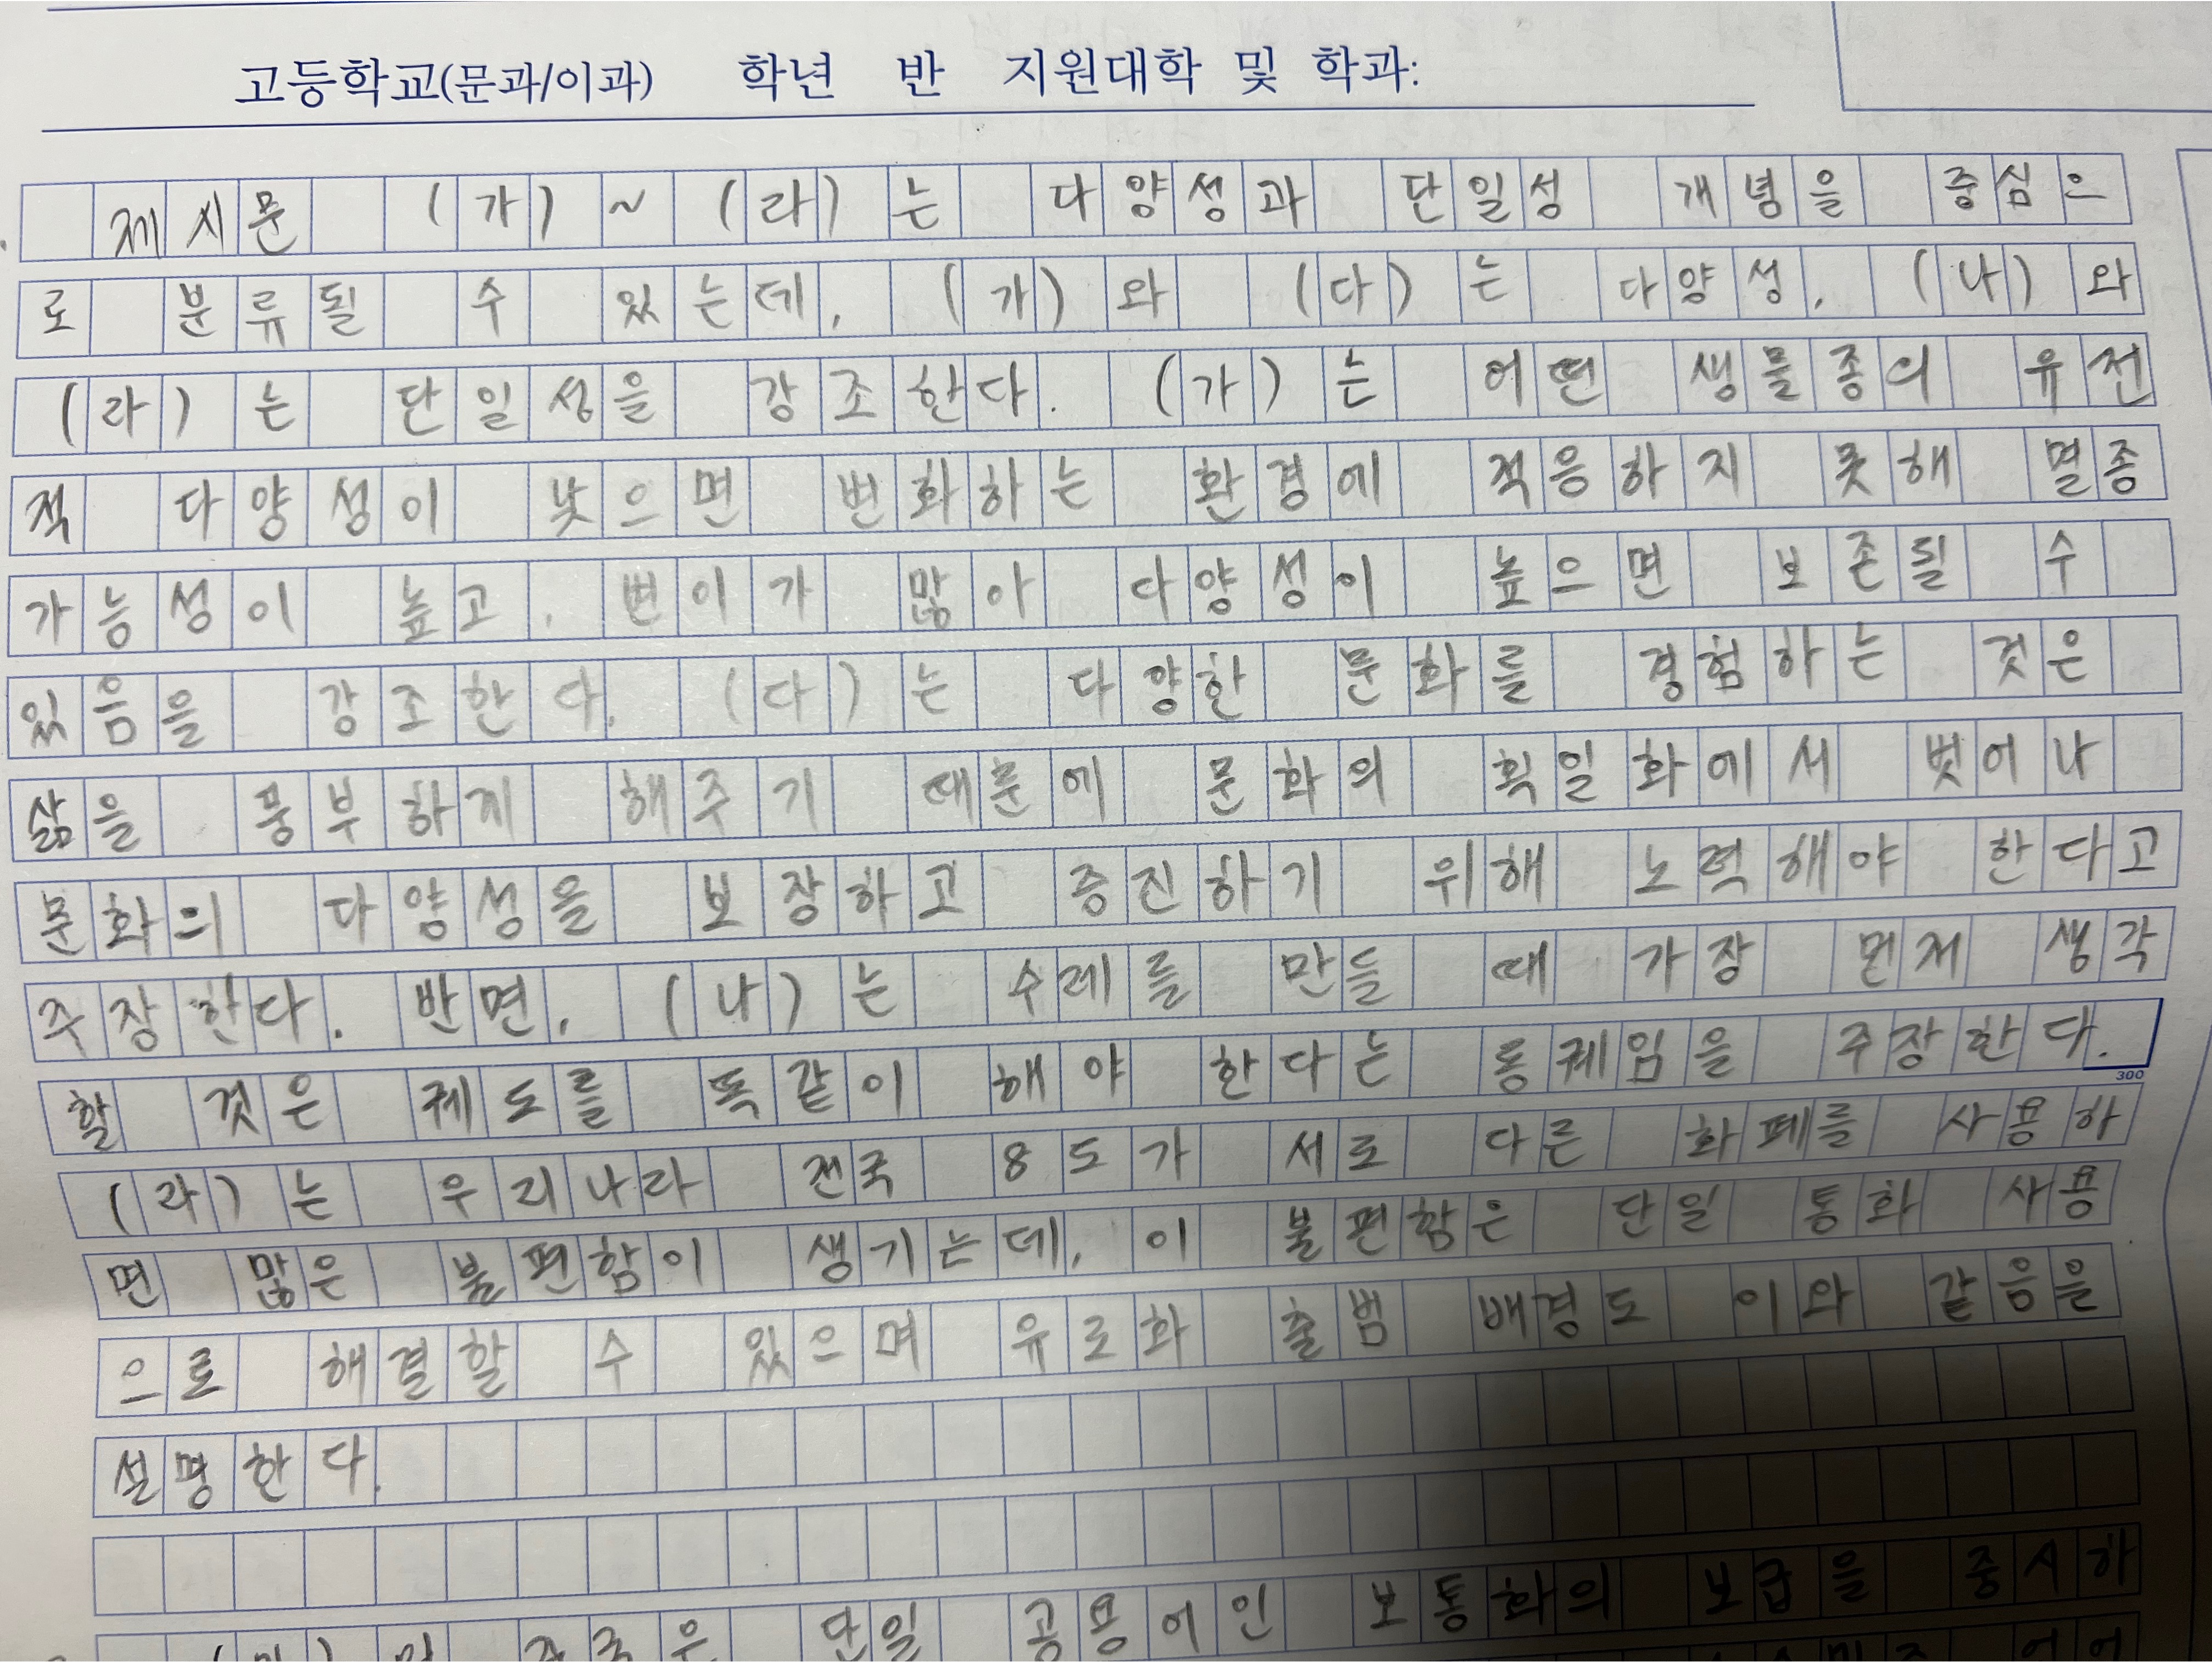 고등학교(문과/이과) 학년 반 지원대학 및 학과:
제시문 (가) ~ (라)는 다양성과 단일성 개념을 중심으
로 분류될 수 있는데, (가)와 (다)는 다양성, (나)와
(라)는 단일성을 강조한다. (가)는 어떤 생물종의 유전
적 다양성이 낮으면 변화하는 환경에 적응하지 못해 멸종
가능성이 높고, 변이가 많아 다양성이 높으면 보존될 수
있음을 강조한다. (다)는 다양한 문화를 경험하는 것은
삶을 풍부하게 해주기 때문에 문화의 획일화에서 벗어나
문화의 다양성을 보장하고 증진하기 위해 노력해야 한다고
주장한다. 반면, (나)는 수레를 만들 때 가장 먼저 생각
할 것은 궤도를 똑같이 해야 한다는 동궤임을 주장한다.
300
(라)는 우리나라 전국 8도가 서로 다른 화폐를 사용하
면 많은 불편함이 생기는데, 이 불편함은 단일 통화 사용
으로 해결할 수 있으며 유로화 출범 배경도 이와 같음을
설명한다.
단일 공용어인 보통화의 보급을 중시하